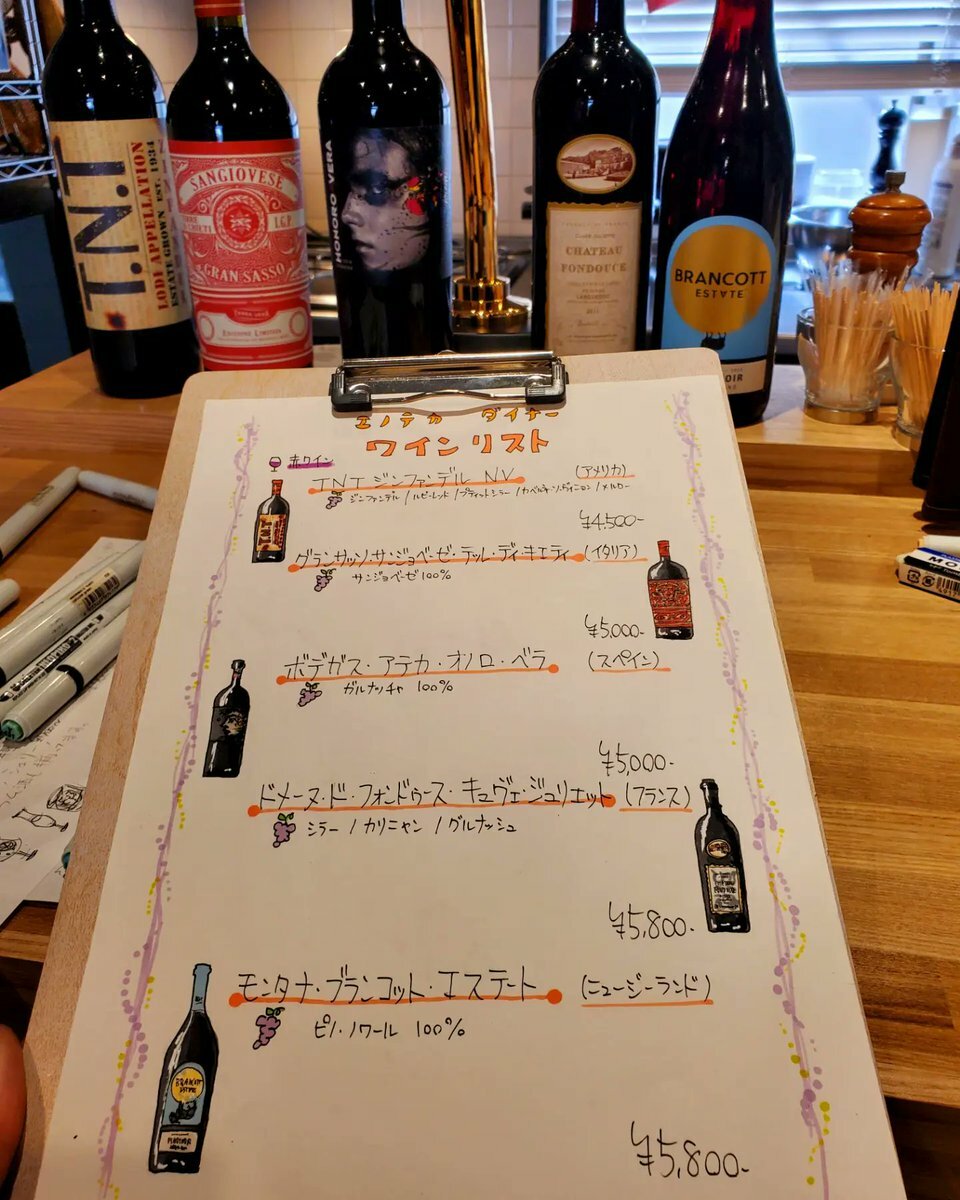 T.N.T
LODI APPELLATION
ESTATE GROWN EST. 1934
SANGIOVESE
I.G.P.
GRAN SASSO
HONORO VERA
CHATEAU
FONDOUCE
BRANCOTT
ESTATE
エノテカ ダイナー
ワインリスト
赤ワイン
TNT ジンファンデル NV (アメリカ)
ジンファンデル / ルビーレッド / プティットシラー / カベルネ・ソーヴィニヨン / メルロー
¥4,500-
グランサッソ・サンジョベーゼ・テッレ・ディ・キエティ (イタリア)
サンジョベーゼ 100%
¥5,000-
ボデガス・アテカ・オノロ・ベラ (スペイン)
ガルナッチャ 100%
¥5,000-
ドメーヌ・ド・フォンドゥース・キュヴェ・ジュリエット (フランス)
シラー / カリニャン / グルナッシュ
¥5,800-
モンタナ・ブランコット・エステート (ニュージーランド)
ピノ・ノワール 100%
BRANCOTT
ESTATE
¥5,800-